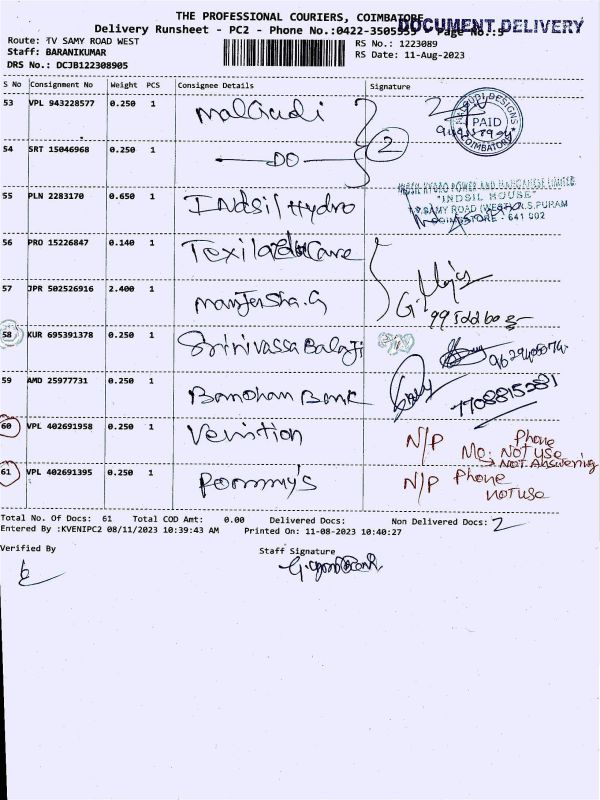 THE PROFESSIONAL COURIERS, COIMBATORE
DOCUMENT DELIVERY
Delivery Runsheet - PC2 - Phone No.:0422-3505555 Page No.:5
Route: TV SAMY ROAD WEST
RS No.: 1223089
Staff: BARANIKUMAR
RS Date: 11-Aug-2023
DRS No.: DCJB122308905
S No Consignment No Weight PCS Consignee Details Signature
53 VPL 943228577 0.250 1 malGudi
MALGUDI DESIGNS PAID COIMBATORE
54 SRT 15046968 0.250 1 DO 2
55 PLN 2283170 0.650 1 INdsil Hydro
INDSIL HYDRO POWER AND MANGANESE LIMITED
"INDSIL HOUSE"
T.V.SAMY ROAD (WEST), R.S.PURAM
COIMBATORE - 641 002
56 PRO 15226847 0.140 1
57 JPR 502526916 2.400 1 manjusha.G
58 KUR 695391378 0.250 1 Srinivassa Balaji
59 AMD 25977731 0.250 1 Bandhan Bank
7708815281
60 VPL 402691958 0.250 1 N/P Phone
Mo: Not use
Not Answering
61 VPL 402691395 0.250 1 Pommy's N/P Phone
not use
Total No. Of Docs: 61 Total COD Amt: 0.00 Delivered Docs: Non Delivered Docs: 2
Entered By :KVENIPC2 08/11/2023 10:39:43 AM Printed On: 11-08-2023 10:40:27
Verified By Staff Signature